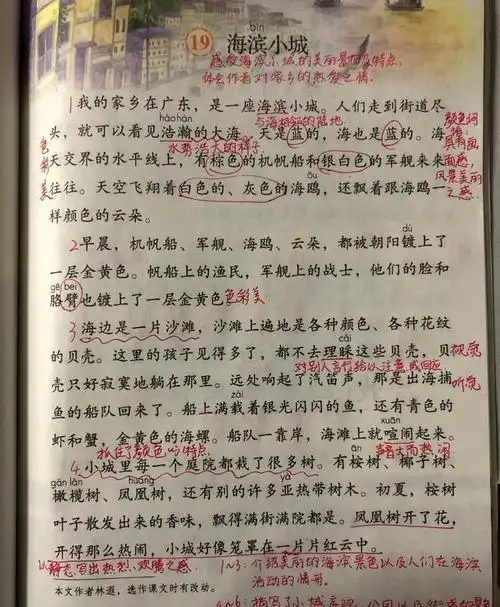 bīn
19 海滨小城
感受海滨小城的美丽景物及特点，
体会作者对家乡的热爱之情。
1我的家乡在广东，是一座海滨小城。人们走到街道尽
hào hàn
与海相邻的陆地
头，就可以看见浩瀚的大海。天是蓝的，海也是蓝的。海
颜色词
水势浩大的样子
具有画面感，
风景美丽之感。
天交界的水平线上，有棕色的机帆船和银白色的军舰来来
色彩美
ōu
往往。天空飞翔着白色的、灰色的海鸥，还飘着跟海鸥一
样颜色的云朵。
dù
2早晨，机帆船、军舰、海鸥、云朵，都被朝阳镀上了
一层金黄色。帆船上的渔民，军舰上的战士，他们的脸和
gē bei
胳臂也镀上了一层金黄色。色彩美
3海边是一片沙滩，沙滩上遍地是各种颜色、各种花纹
cǎi
的贝壳。这里的孩子见得多了，都不去理睬这些贝壳，贝
视觉
对别人言行给以注意或回应
壳只好寂寞地躺在那里。远处响起了汽笛声，那是出海捕
听觉
zài
鱼的船队回来了。船上满载着银光闪闪的鱼，还有青色的
xuān
虾和蟹，金黄色的海螺。船队一靠岸，海滩上就喧闹起来。
抓住了颜色的特点
声音大而热闹
ān
4小城里每一个庭院都栽了很多树。有桉树、椰子树、
gǎn lǎn
huáng
yà
橄榄树、凤凰树，还有别的许多亚热带树木。初夏，桉树
叶子散发出来的香味，飘得满街满院都是。凤凰树开了花，
开得那么热闹，小城好像笼罩在一片片红云中。
以静态写出热烈、欢腾之感
1~3：介绍美丽的海滨景色以及人们在海滨
活动的情形。
本文作者林遐，选作课文时有改动。